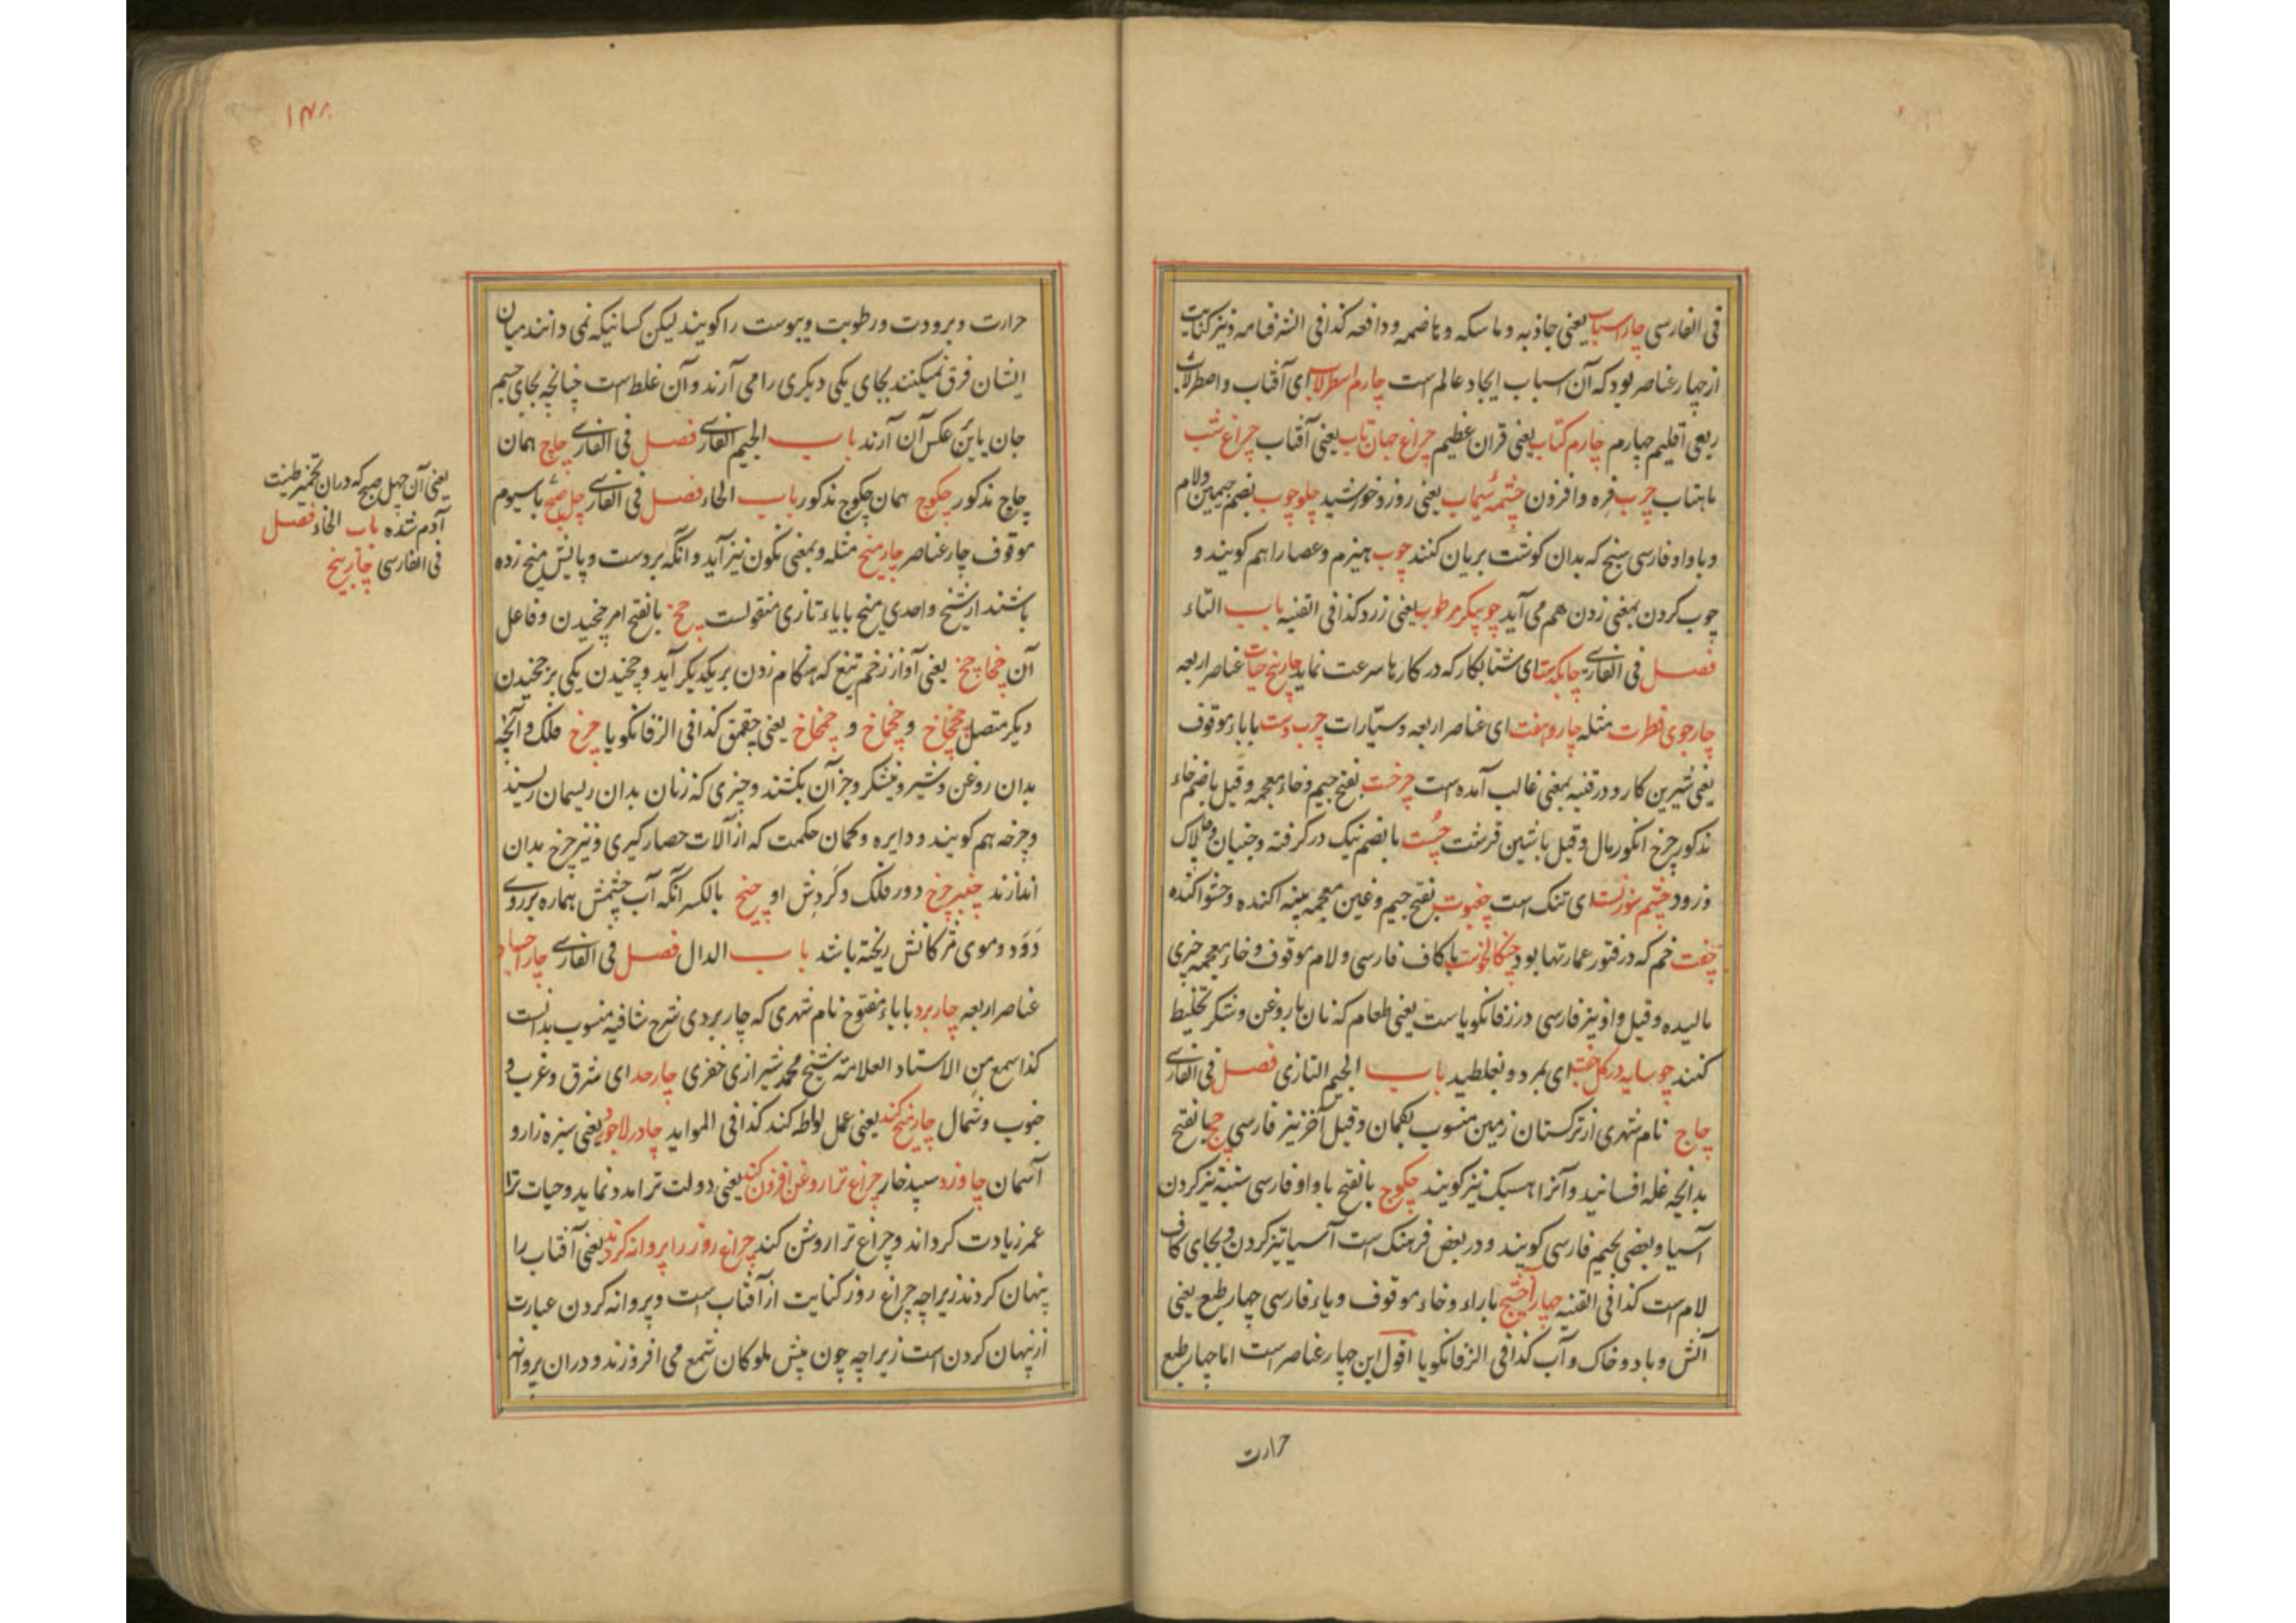 فی الفارسی چار اسباب یعنی جاذبه و ماسکه و هاضمه و دافعه کذا فی الشرفنامه و نیز کنایت
از چهار عناصر بود که آن اسباب ایجاد عالم است چارم اسطرلاب ای آفتاب و اصطرلاب
ربعی اقلیم چهارم چارم کتاب یعنی قران عظیم چراغ جهان تاب یعنی آفتاب چراغ شب
ماهتاب چرب فره و افزون چشمه سیماب یعنی روز و خورشید چلوچوب بضم جیمین و لام
و با واو فارسی سیخ که بدان گوشت بریان کنند چوب هیزم و عصا را هم کویند و
چوب کردن بمعنی زدن هم می آید چوبیکر مرطوب یعنی زرد کذا فی القنیه باب التاء
فصل فی الفارسی چابکدستا ای شتابکار که در کارها سرعت نماید چار بیخ حیات عناصر اربعه
چارجوی فطرت مثله چار و هفت ای عناصر اربعه و سیارات چرب دست باباء موقوف
یعنی شیرین کار و در قنیه بمعنی غالب آمده است چرخت بفتح جیم و خاء معجمه و قیل باضم خاء
مذکور چرخ انکور مال و قیل باشین قرشت چست بالضم نیک در کرفته و جنبان و چالاک
و زود چشم سوزنست ای تنک است چغبوت بفتح جیم و غین معجمه پنبه اکنده و حشو اکنده
چفت خم که در فتور عمارتها بود چنکالخوست باکاف فارسی و لام موقوف و خاء معجمه چیزی
مالیده و قیل واو نیز فارسی در زفانکویاست یعنی طعام که نان با روغن و شکر تخلیط
کنند چو سایه در کل خفت ای بمرد و بغلطید باب الجیم التازی فصل فی الفارسی
چاج نام شهری از ترکستان زمین منسوب بکمان و قیل آخر نیز فارسی چج بالفتح
بدانچه غله افسانید و آنرا هسک نیز کویند چکوج بالفتح باواو فارسی ستنبه تیز کردن
آسیا و بعضی بجیم فارسی کویند و در بعض فرهنک است آسیا تیز کردن و بجای کاف
لام است کذا فی القنیه چهار آخشیج باراء و خاء موقوف و یاء فارسی چهار طبع یعنی
آتش و باد و خاک و آب کذا فی الزفانکویا اقول این چهار عناصر است اما چهار طبع
حرارت
۱۳۸
حرارت و برودت و رطوبت و یبوست را کویند لیکن کسانیکه نمی دانند میان
ایشان فرق نمیکنند بجای یکی دیکری را می آرند و آن غلط است چنانچه بجای جسم
جان یا بر عکس آن آرند باب الجیم الفارسی فصل فی الفارسی چاچ همان
چاج مذکور چکوچ همان چکوج مذکور باب الخاء فصل فی الفارسی چل صبح باسیوم
موقوف چار عناصر چار میخ مثله و بمعنی نکون نیز آید و انکه بر دست و پایش میخ زده
باشند از شیخ واحدی میخ بایاء تازی منقولست چخ بالفتح امر چخیدن و فاعل
آن چخاچخ یعنی آواز زخم تیغ که هنکام زدن بر یکدیکر آید و چخیدن یکی بر چخیدن
دیکر متصل چخچاخ و چخماخ و چمخاخ یعنی چقمق کذا فی الزفانکویا چرخ فلک و آنچه
بدان روغن و شیر و نیشکر و جز آن بکشند و چیزی که زنان بدان ریسمان ریسند
و چرخه هم کویند و دایره و کمان حکمت که از آلات حصار کیری و تیر چرخ بدان
اندازند چنبر چرخ دور فلک و کردش او چنخ بالکسر انکه آب چشمش هماره بر روی
دود و موی مژکانش ریخته باشد باب الدال فصل فی الفارسی چار اجساد
عناصر اربعه چاربرد باباء مفتوح نام شهری که چاربردی شرح شافیه منسوب بدانست
کذا سمع من الاستاد العلامة شیخ محمد شیرازی خفری چارحد ای شرق و غرب و
جنوب و شمال چار میخ کند یعنی عمل لواطه کند کذا فی المواید چادر لاجورد یعنی سبزه زار و
آسمان چاوزد سپید خار چراغ ترا روغن افزون کند یعنی دولت ترا مدد نماید و حیات ترا
عمر زیادت کرداند و چراغ ترا روشن کند چراغ روز را پروانه کردند یعنی آفتاب را
پنهان کردند زیراچه چراغ روز کنایت از آفتاب است و پروانه کردن عبارت
از پنهان کردن است زیراچه چون پیش ملوکان شمع می افروزند و دران پروانه
یعنی آن چهل صبح که دران تخمیر طینت
آدم شده باب الخاء فصل
فی الفارسی چار بیخ